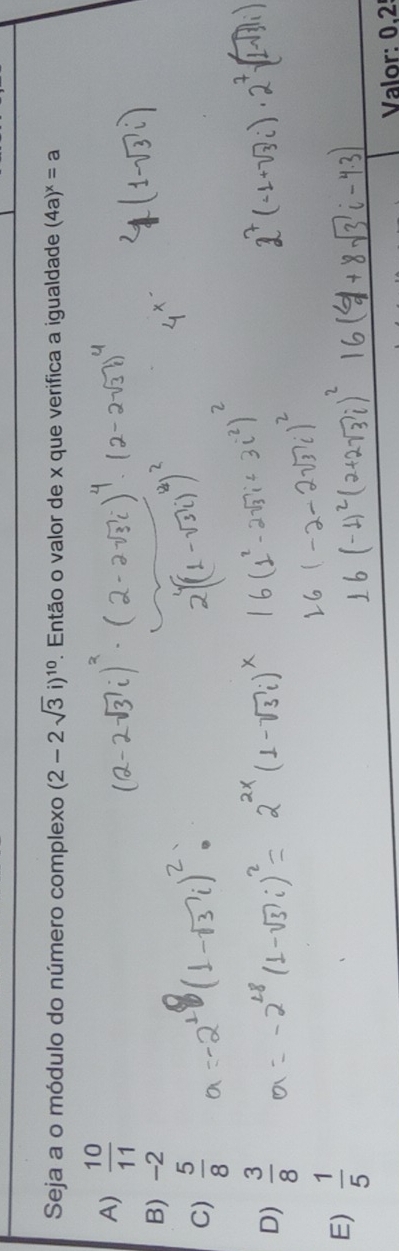 Seja a o módulo do número complexo (2 − 2√3 i)¹⁰. Então o valor de x que verifica a igualdade (4a)ˣ = a
A) 10/11
B) −2
C) 5/8
D) 3/8
E) 1/5
(2-2√3 i)² · (2-2√3 i)⁴ · (2-2√3 i)⁴
4(1-√3 i)
4ˣ
a = -2¹⁸(1-√3 i)²
a = -2¹⁸(1-√3 i)² = 2²ˣ(1-√3 i)ˣ
16(1²-2√3 i+3i²)²
16(-2-2√3 i)²
16(-1)²(2+2√3 i)²
Valor: 0,2